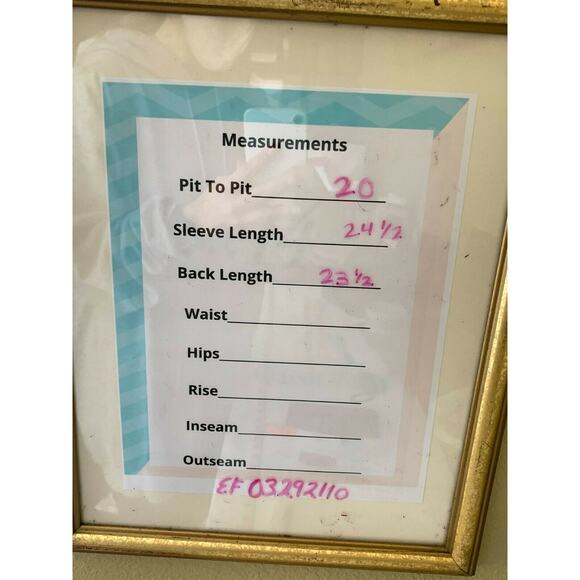 Measurements
Pit To Pit 20
Sleeve Length 24 1/2
Back Length 23 1/2
Waist
Hips
Rise
Inseam
Outseam
EF 03292110